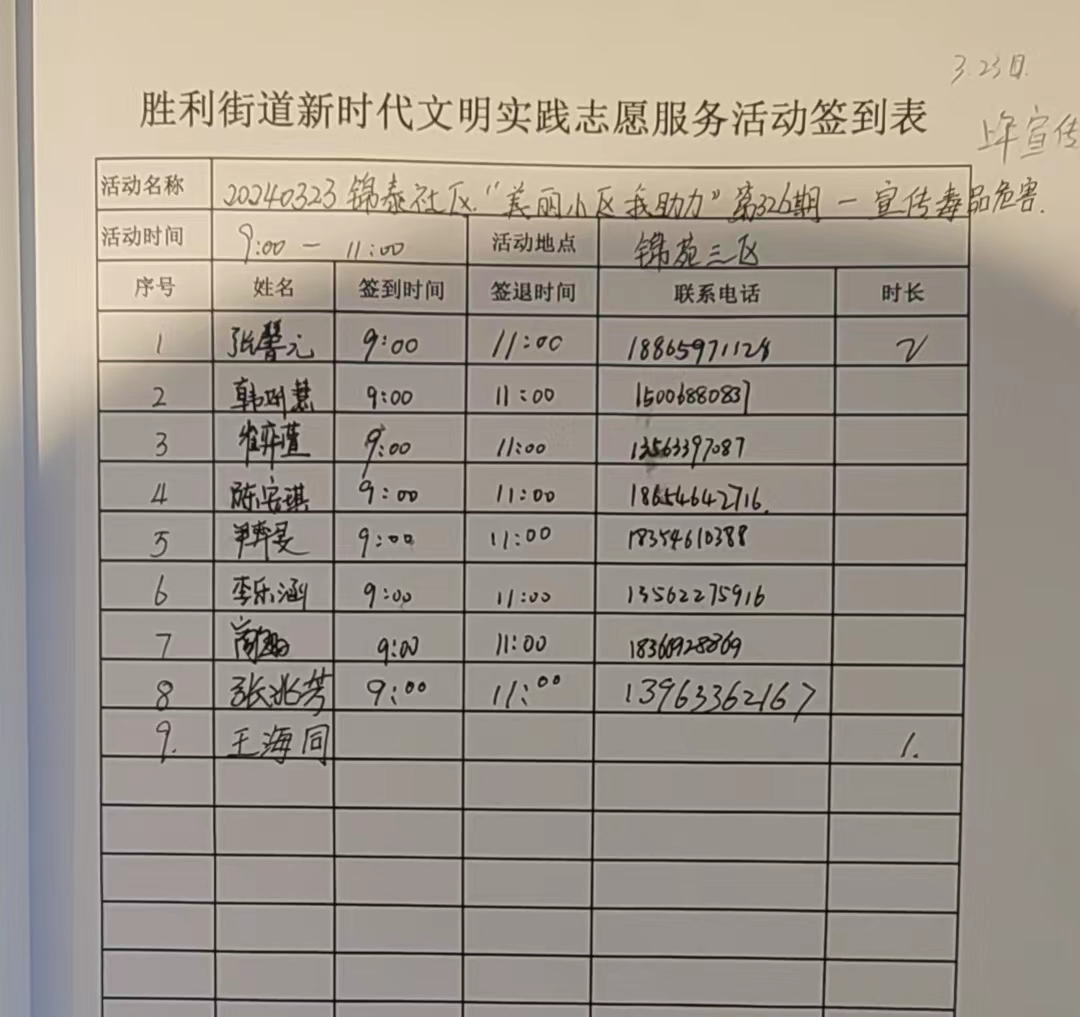 3.23日.
胜利街道新时代文明实践志愿服务活动签到表
上午宣传
活动名称 20240323 锦泰社区“美丽小区我助力”第326期 — 宣传毒品危害.
活动时间 9:00 — 11:00 活动地点 锦苑三区
序号 姓名 签到时间 签退时间 联系电话 时长
1 张馨元 9:00 11:00 18865971128 2
2 韩明慧 9:00 11:00 15006880837
3 崔弈萱 9:00 11:00 13563397087
4 陈安琪 9:00 11:00 18654642716.
5 9:00 11:00 18354610388
6 李乐涵 9:00 11:00 13562275916
7 9:00 11:00
8 张兆芳 9:00 11:00 13963362167
9. 王海同 1.